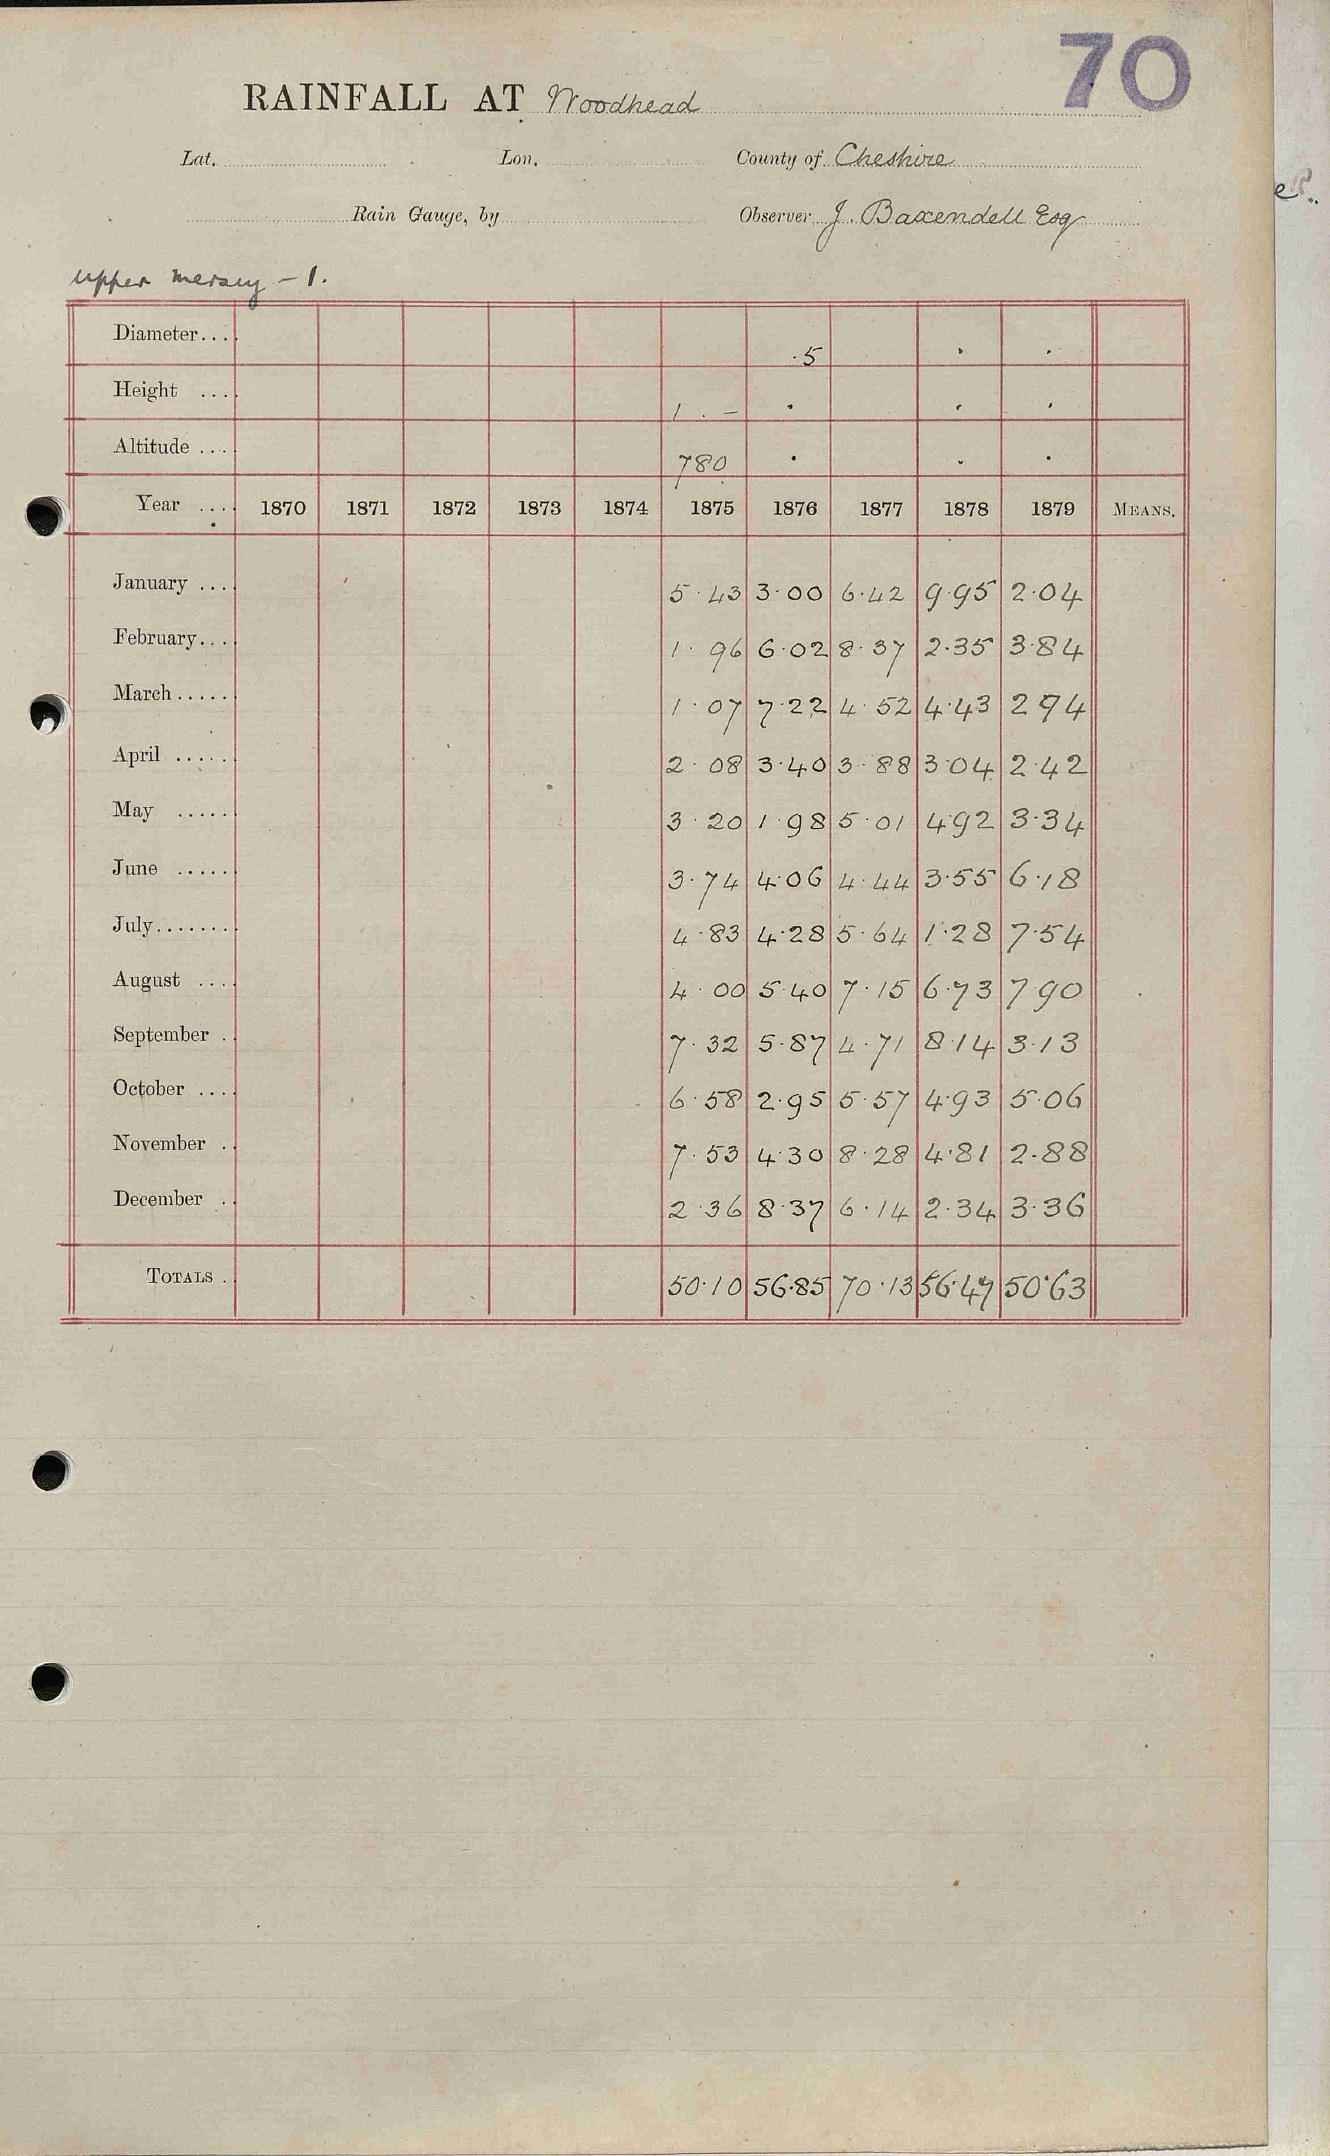 70
RAINFALL AT Woodhead
Lat. Lon. County of Cheshire
Rain Gauge, by Observer J. Baxendell Esq
Upper Mersey - 1.
Diameter.... .5 . .
Height .... 1 . - . . .
Altitude .... 780 . . .
Year .... 1870 1871 1872 1873 1874 1875 1876 1877 1878 1879 MEANS.
January .... 5.43 3.00 6.42 9.95 2.04
February.... 1.96 6.02 8.37 2.35 3.84
March..... 1.07 7.22 4.52 4.43 2 94
April ...... 2.08 3.40 3.88 3.04 2.42
May ..... 3.20 1.98 5.01 4.92 3.34
June ..... 3.74 4.06 4.44 3.55 6.18
July....... 4.83 4.28 5.64 1.28 7.54
August .... 4.00 5.40 7.15 6.73 7.90
September . 7.32 5.87 4.71 8.14 3.13
October .... 6.58 2.95 5.57 4.93 5.06
November .. 7.53 4.30 8.28 4.81 2.88
December .. 2.36 8.37 6.14 2.34 3.36
TOTALS . 50.10 56.85 70.13 56.47 50.63